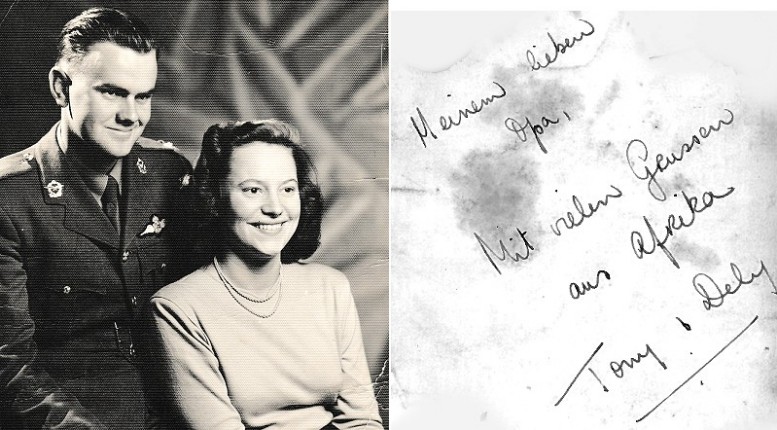 Meinem lieben
Opa,
Mit vielen Grussen
aus Afrika
Tony & Dely